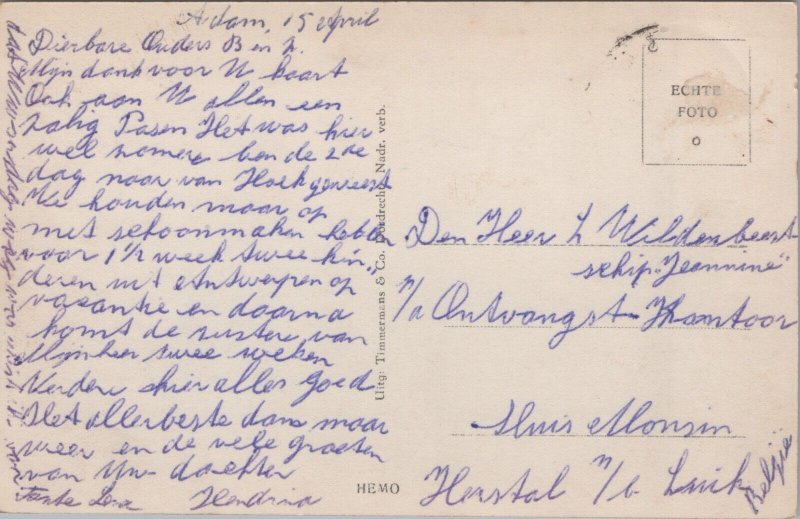 A'dam, 15 April
Dierbare Ouders B en Z.
Mijn dank voor U kaart
Ook aan U allen een
zalig Pasen Het was hier
wel zomers ben de 2de
dag naar van Hoek geweest
We houden maar op
met schoonmaken hebben
voor 1½ week twee kin„
deren uit Antwerpen op
vacantie en daarna
komt de zuster van
Mijnheer twee weken
Verder hier alles Goed
Het allerbeste dan maar
weer en de vele groeten
van Uw dochter
Hendrina
Tante
Uitg: Timmermans & Co. Dordrecht Nadr. verb.
HEMO
ECHTE
FOTO
Den Heer L Wildenbeest
schip „Jeannine”
p/a Ontvangst-Kantoor
Sluis Monsin
Herstal b/ Luik
Belgie